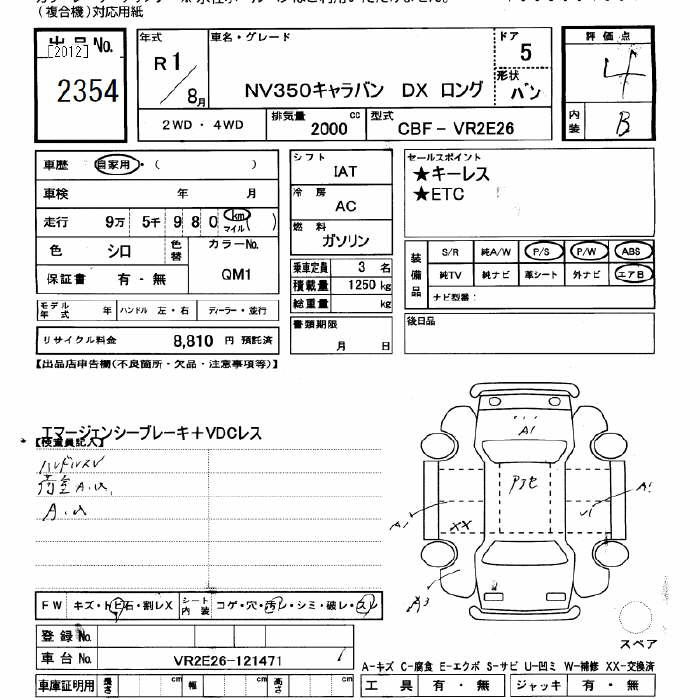 (複合機)対応用紙
出品No.
[2012]
2354
年式
R1/8月
車名・グレード
NV350キャラバン DX ロング
ドア
5
形状
バン
評価点
4
内装
B
2WD・4WD
排気量
2000 cc
型式
CBF-VR2E26
車歴 自家用・( )
車検 年 月
走行 9万 5千 9 8 0 km マイル( )
色 シロ
色替
カラーNo.
QM1
保証書 有・無
モデル年式 年
ハンドル 左・右
ディーラー・並行
リサイクル料金 8,810 円 預託済
シフト
IAT
冷房
AC
燃料
ガソリン
乗車定員 3 名
積載量 1250 kg
総重量 kg
書類期限
月 日
セールスポイント
★キーレス
★ETC
装備品
S/R 純A/W P/S P/W ABS
純TV 純ナビ 革シート 外ナビ エアB
ナビ型番:
後日品
【出品店申告欄(不良箇所・欠品・注意事項等)】
エマージェンシーブレーキ+VDCレス
【検査員記入】
ハンドルスレ
荷室A.U.
A.U
FW キズ・トビ石・割レX
シート内装 コゲ・穴・汚レ・シミ・破レ・スレ
登録No.
車台No. VR2E26-121471
車庫証明用 長さ cm 幅 cm 高さ cm
A1
A1
A1
XX
A3
スペア
A-キズ C-腐食 E-エクボ S-サビ U-凹ミ W-補修 XX-交換済
工具 有・無 ジャッキ 有・無